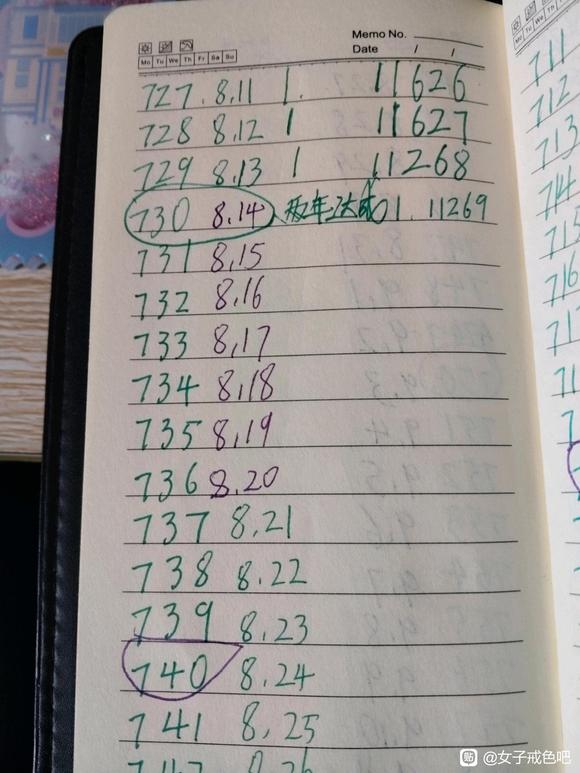 Memo No.
Mo Tu We Th Fr Sa Su
Date / /
727. 8.11 1. 11626
728 8.12 1 11627
729 8.13 1 11268
730 8.14 两年达成 01. 11269
731 8.15
732 8.16
733 8.17
734 8.18
735 8.19
736 8.20
737 8.21
738 8.22
739 8.23
740 8.24
741 8.25
8.26
711
712
713
714
715
716
贴 @女子戒色吧